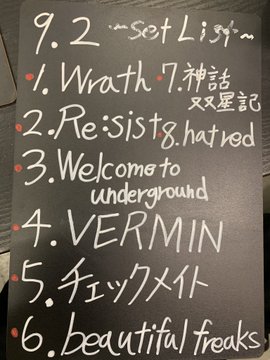 9.2 ~Set List~
1. Wrath
2. Re:sist
3. Welcome to
underground
4. VERMIN
5. チェックメイト
6. beautiful freaks
7. 神話
双星記
8. hatred